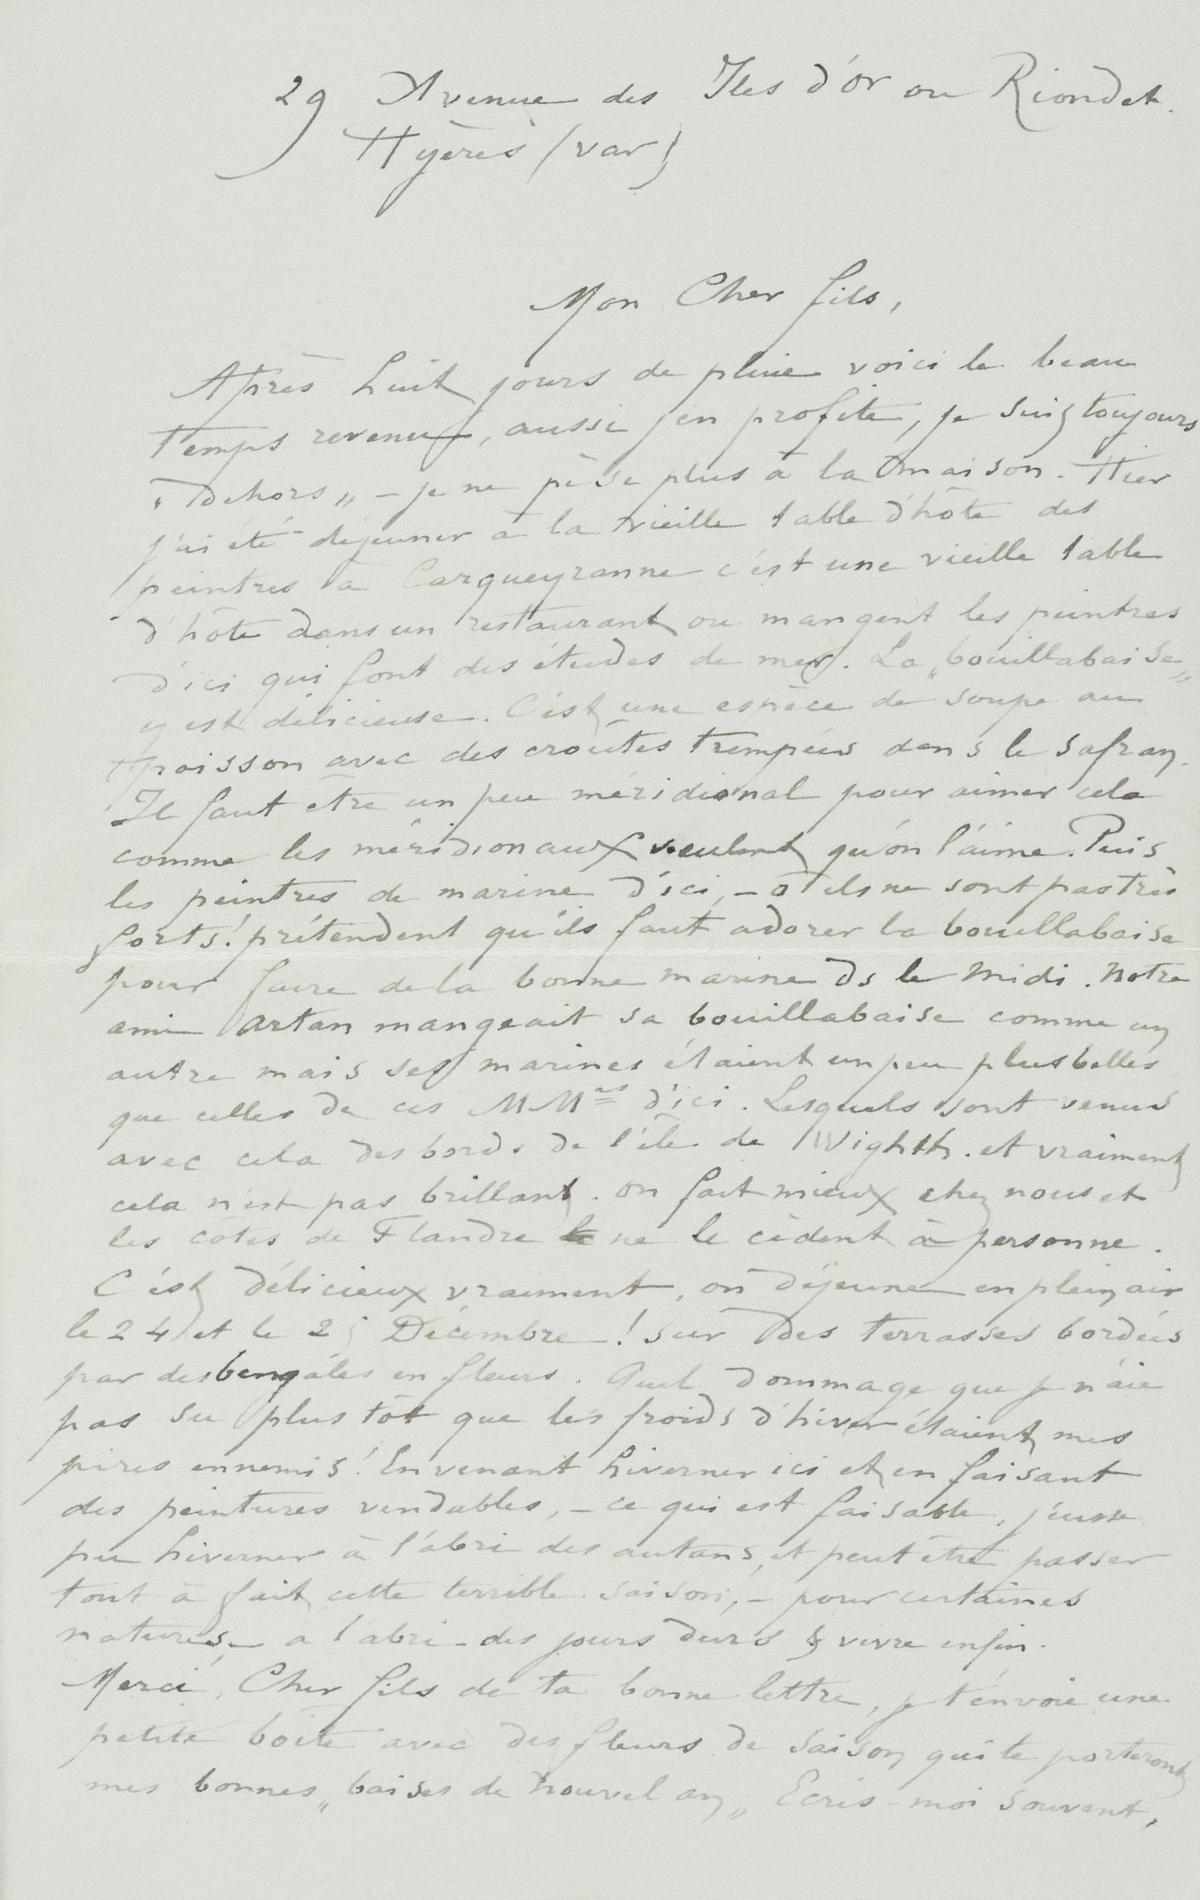 29 Avenue des Iles d'or ou Riondet.
Hyères (var)
Mon Cher fils,
Après huit jours de pluie voici le beau
temps revenu, aussi j'en profite, je suis toujours
"dehors" – je ne pèse plus à la maison. Hier
j'ai été déjeuner à la vieille table d'hôte des
peintres a Carqueyranne c'est une vieille table
d'hôte dans un restaurant ou mangent les peintres
d'ici qui font des études de mer. La "bouillabaise"
y est délicieuse. C'est une espèce de soupe au
poisson avec des croûtes trempées dans le safran.
Il faut etre un peu méridional pour aimer cela
comme les méridionaux veulent qu'on l'aime. Puis
les peintres de marine d'ici, – o ils ne sont pas très
forts! prétendent qu'ils faut adorer la bouillabaise
pour faire de la bonne marine ds le Midi. Notre
ami Artan mangeait sa bouillabaise comme un
autre mais ses marines étaient un peu plus belles
que celles de ces MMrs d'ici. Lesquels sont venus
avec cela des bords de l'île de Wighth. et vraiment
cela n'est pas brillant. on fait mieux chez nous et
les côtes de Flandre ne le cèdent à personne.
C'est délicieux vraiment, on déjeune en plein air
le 24 et le 25 Décembre! sur des terrasses bordées
par des bengales en fleurs. Quel dommage que je n'aie
pas su plus tôt que les froids d'hiver étaient mes
pires ennemis! En venant hiverner ici et en faisant
des peintures vendables, – ce qui est faisable, j'eusse
pu hiverner à l'abri des autans, et peut être passer
tout a fait cette terrible saison, – pour certaines
natures – a l'abri – des jours durs & vivre enfin.
Merci, Cher fils de ta bonne lettre, je t'envoie une
petite boite avec des fleurs de saison qui te porteront
mes bonnes "baises de nouvel an" Ecris-moi souvent,